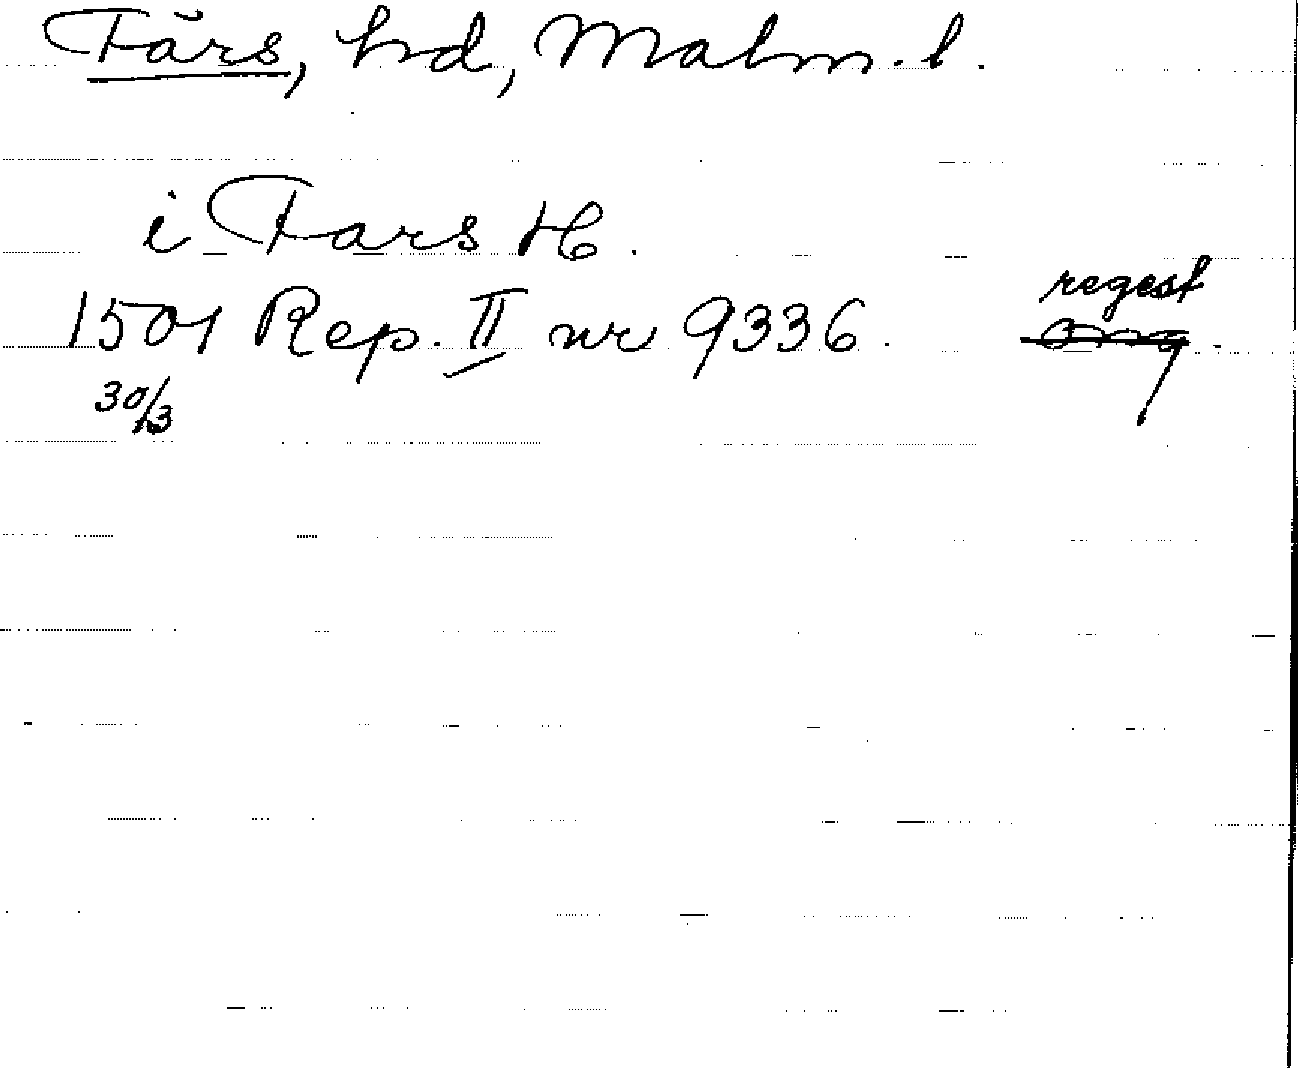 Färs, hd, Malm. l.
i Fars H.
regest
1501 Rep. II nr 9336.
30/3